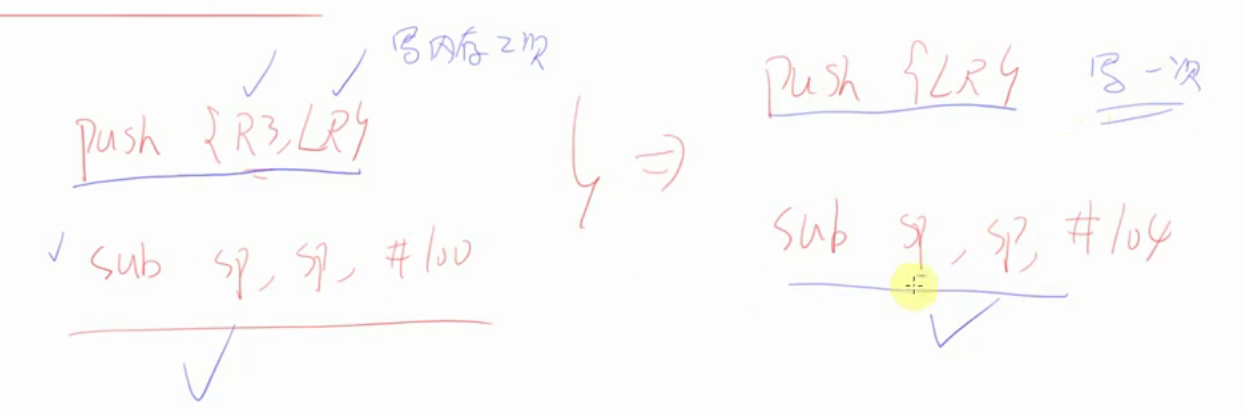 写内存2次
push {R3,LR}
sub sp, sp, #100
} ⇒
push {LR} 写一次
sub sp, sp, #104